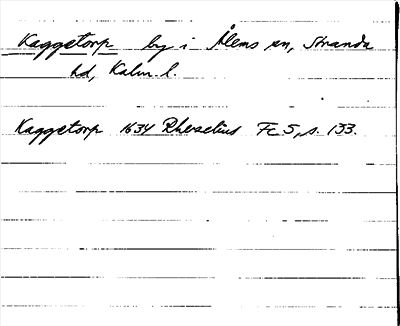 Kaggetorp by i Ålems sn, Stranda
hd, Kalm. l.
Kaggetorp 1634 Rhezelius Fc 5, s. 133.